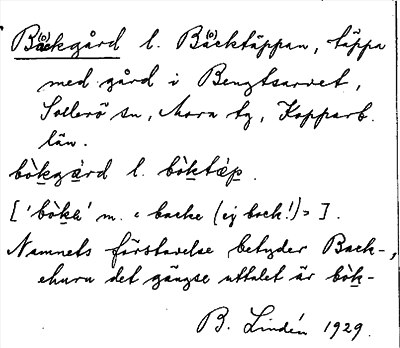 Backgård l. Backtäppan, täppa
med gård i Bengtsarvet,
Sollerö sn, Mora tg, Kopparb.
län.
bòkgàrd l. bòktæp.
['bòka' m. = backe (ej bock!) = ].
Namnets förstavelse betyder Back-,
ehuru det gängse uttalet är bòk-
B. Lindén 1929.